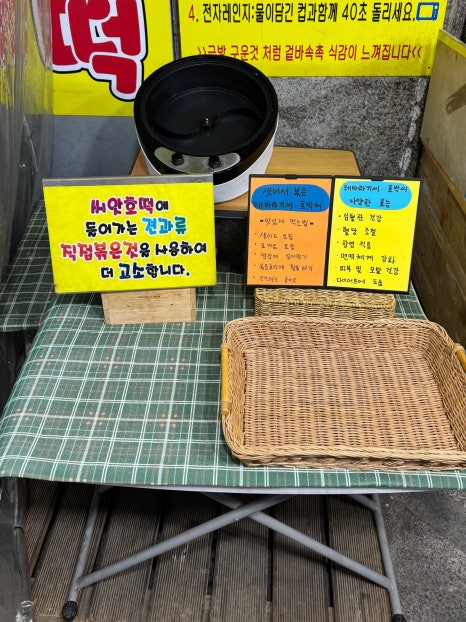 떡
4. 전자레인지·물이담긴 컵과함께 40초 돌리세요.
>>금방 구운것 처럼 겉바속촉 식감이 느껴집니다<<
씨앗호떡에
들어가는 견과류
직접볶은것을 사용하여
더 고소합니다.
씻어서 볶은
해바라기씨·호박씨
*맛있게 먹는법*
•샐러드 토핑
•요거트 토핑
해바라기씨·호박씨
다양한 효능
•심혈관 건강
•혈당 조절
•항염 작용
•면역체계 강화
•피부 및 모발 건강
•다이어트에 도움